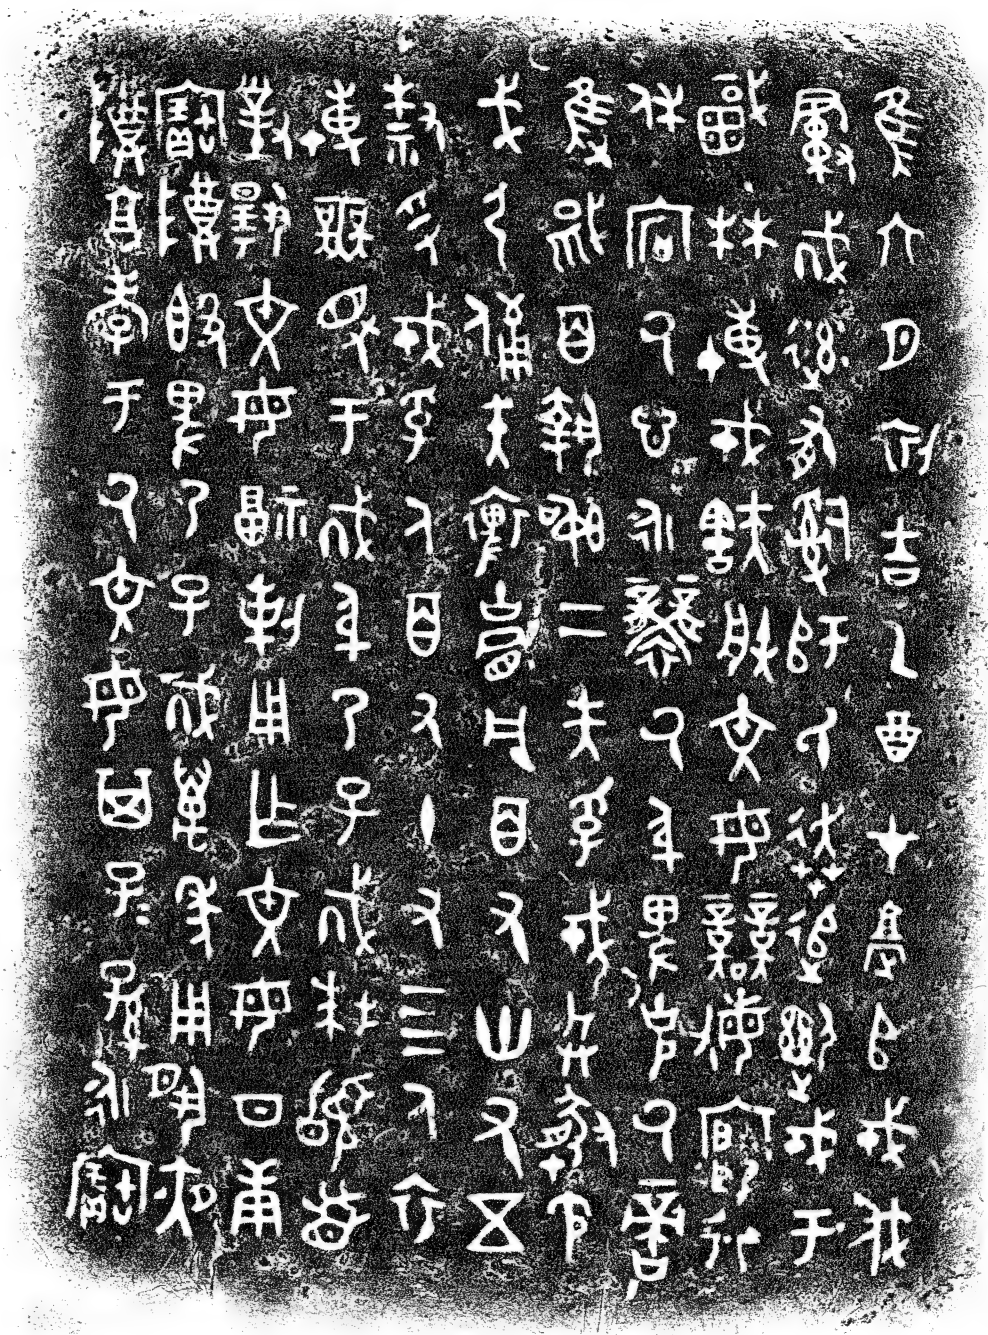 隹六月初吉乙酉才堂𠂤戎伐
𢾭𢦚率有𤔲師氏奔追𨒥戎于
𣐺林博戎㝬朕文母競敏𥨪行
休宕厥心永襲厥身卑克厥啻
隻馘百執訊二夫孚戎兵盾矛
戈弓備矢裨胄凡百又卅又五
款寽戎孚人百又十又四人衣
博無𢦔于𢦚身乃子𢦚拜𩒨首
對揚文母福剌用乍文母日庚
寶尊簋卑乃子𢦚萬年用夙夜
尊享孝于厥文母其子=孫=永寶